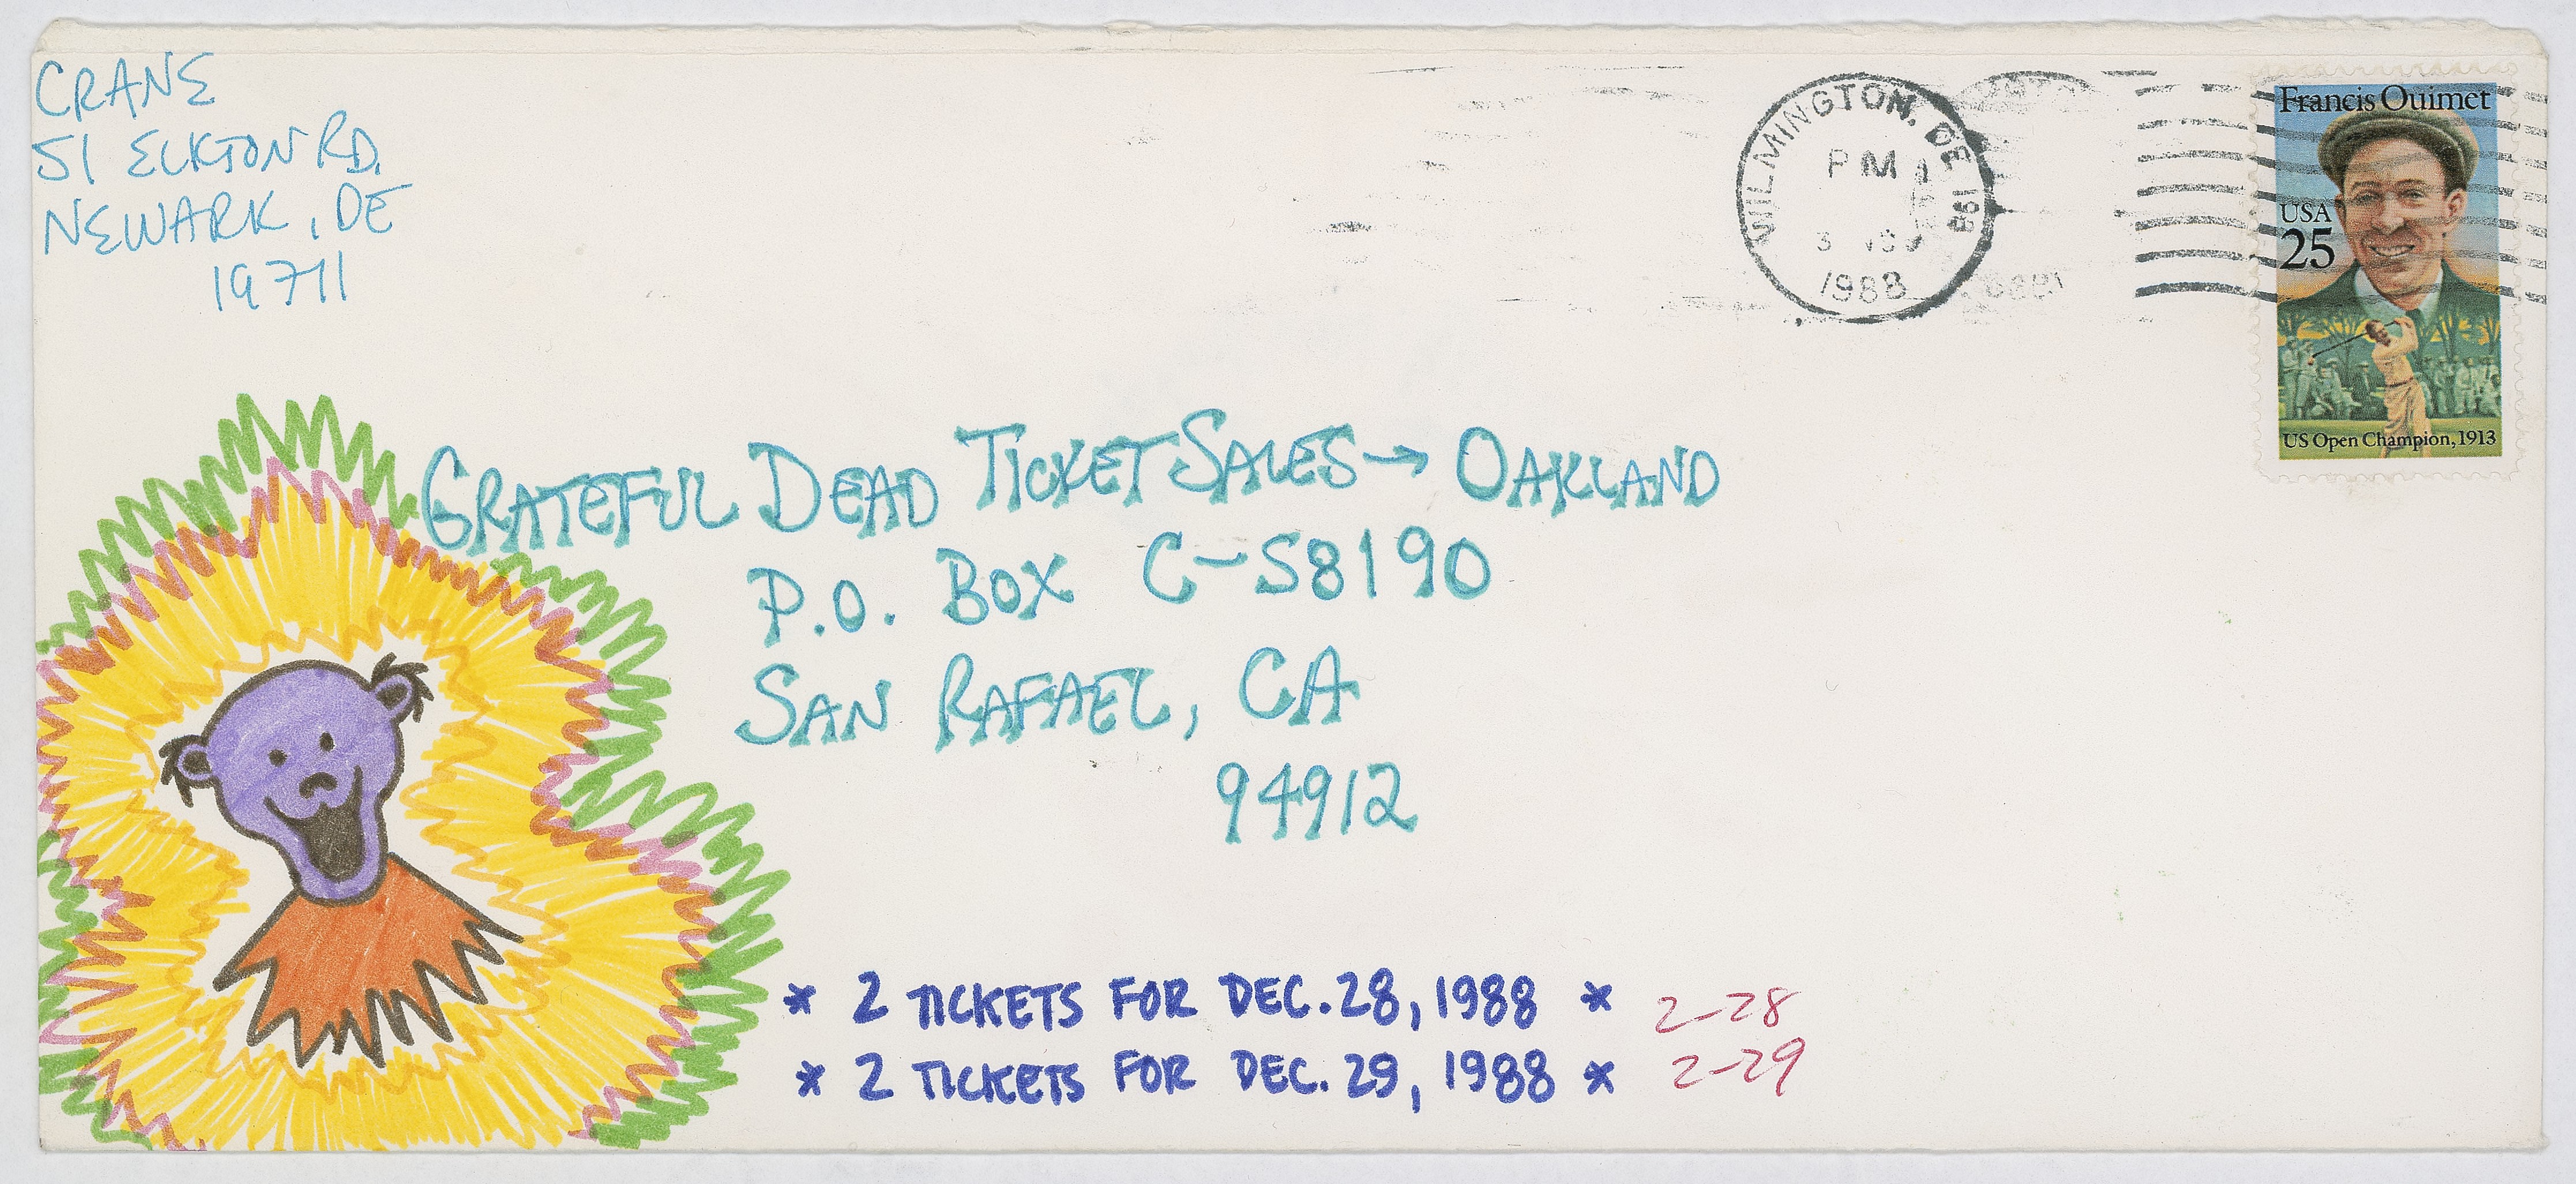 CRANE
51 ELKTON RD.
NEWARK, DE
19711
WILMINGTON, DE 198
PM
1988
Francis Ouimet
USA
25
US Open Champion, 1913
GRATEFUL DEAD TICKET SALES → OAKLAND
P.O. BOX C-S8190
SAN RAFAEL, CA
94912
* 2 TICKETS FOR DEC. 28, 1988 * 2-28
* 2 TICKETS FOR DEC. 29, 1988 * 2-29